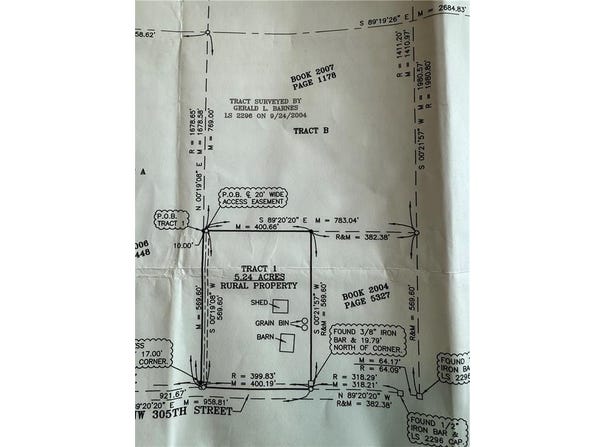 S 89°19'26" E M = 2684.83'
58.62'
R = 1411.20'
M = 1410.97'
M = 1980.57'
R = 1980.80'
S 00°21'57" W
BOOK 2007
PAGE 1178
TRACT SURVEYED BY
GERALD L. BARNES
LS 2296 ON 9/24/2004
TRACT B
R = 1678.65'
M = 1678.58'
M = 769.00'
N 00°19'08" E
A
P.O.B. ℄ 20' WIDE
ACCESS EASEMENT
P.O.B.
TRACT 1
S 89°20'20" E M = 783.04'
M = 400.66'
R&M = 382.38'
006
448
10.00'
TRACT 1
5.24 ACRES
RURAL PROPERTY
M = 569.60'
S 00°19'08" W
569.60'
S 00°21'57" W
R&M = 569.60'
R&M = 569.60'
BOOK 2004
PAGE 5327
SHED
GRAIN BIN
BARN
FOUND 3/8" IRON
BAR & 19.79'
NORTH OF CORNER.
SS
17.00'
CORNER.
M = 64.17'
R = 64.09'
R = 399.83'
M = 400.19'
R = 318.29'
M = 318.21'
FOUND
IRON BA
LS 229
921.67'
M = 958.81'
°20'20" E
N 89°20'20" W
R&M = 382.38'
NW 305TH STREET
FOUND 1/2"
IRON BAR &
LS 2296 CAP